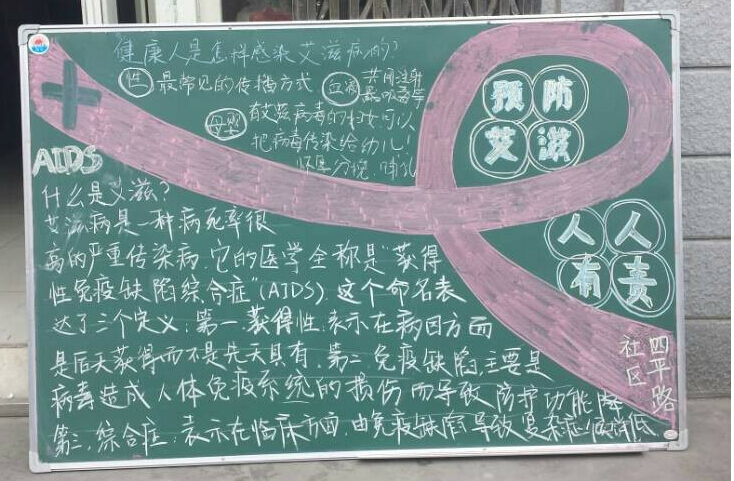 健康人是怎样感染艾滋病的?
性 最常见的传播方式 血液 共同注射
器吸毒等
母婴 有艾滋病毒的妇女可以
把病毒传染给幼儿!
怀孕 分娩 哺乳
预防
艾滋
人人
有责
AIDS
什么是艾滋?
艾滋病是一种病死率很
高的严重传染病.它的医学全称是“获得
性免疫缺陷综合症”(AIDS).这个命名表
达了三个定义:第一.获得性:表示在病因方面
是后天获得而不是先天具有.第二 免疫缺陷:主要是
病毒造成人体免疫系统的损伤而导致防护功能降
第三.综合症:表示在临床方面.由免疫缺陷导致复杂症
四平路
社区